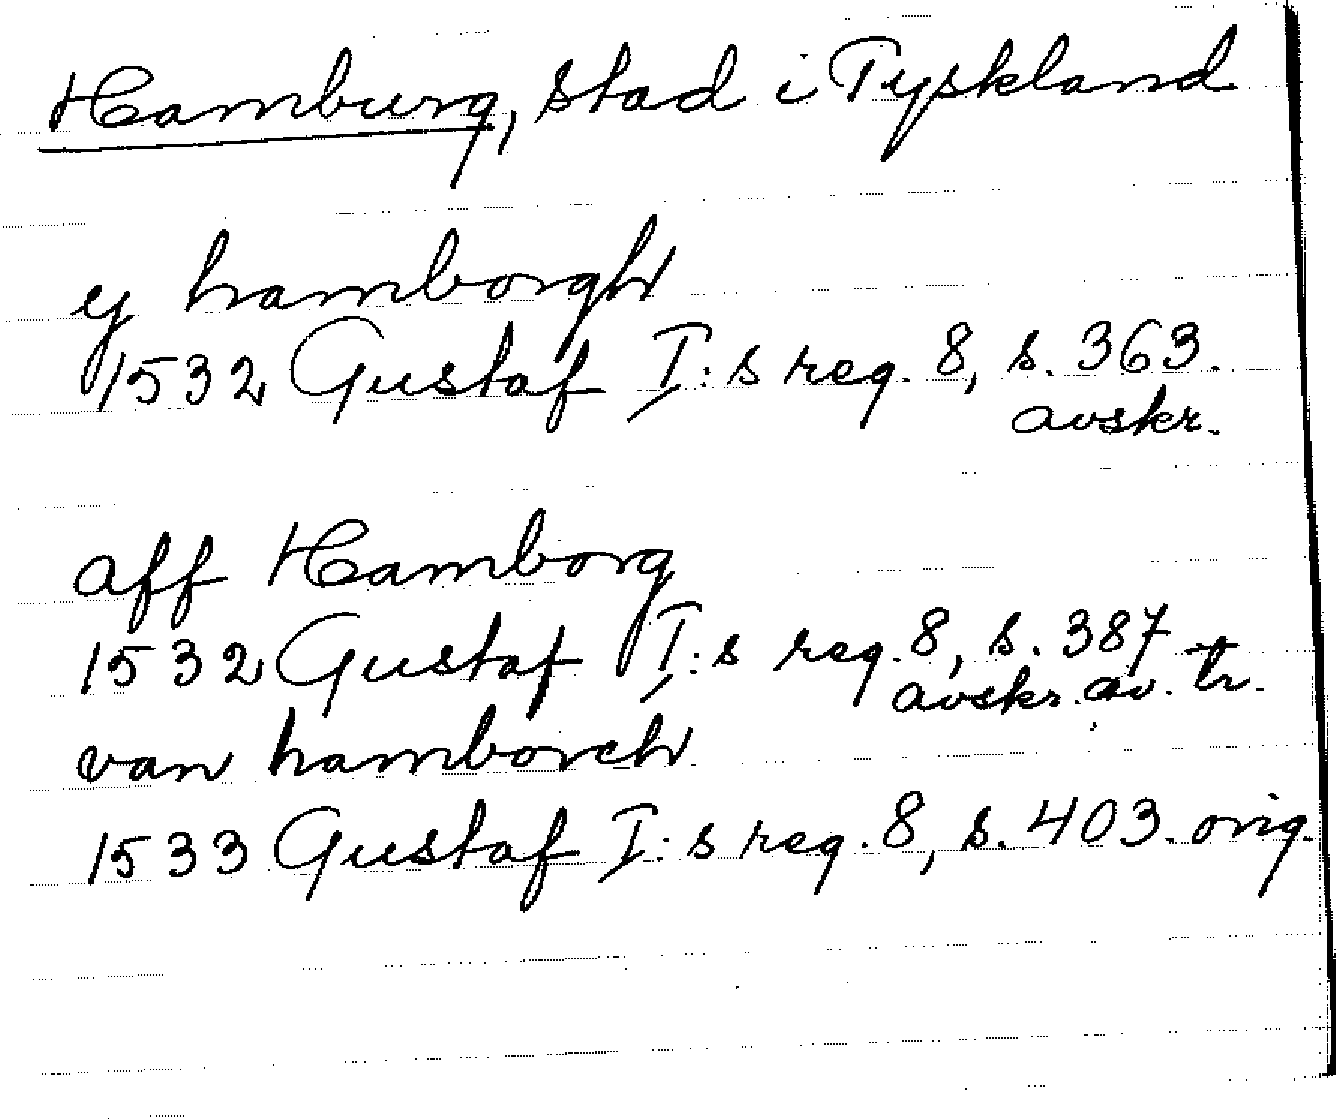 Hamburg, stad i Tyskland
y hamborgh
1532 Gustaf I:s reg. 8, s. 363.
avskr.
aff Hamborg
1532 Gustaf I:s reg. 8, s. 387
avskr. av. tr.
van hamborch
1533 Gustaf I:s reg. 8, s. 403. orig.